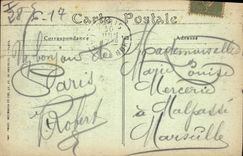 28-5-17
Carte Postale
Correspondance
Adresse
Un bonjour de
Paris
Robert
Mademoiselle
Marie Louise
Mercerie
à Malpassé
Marseille